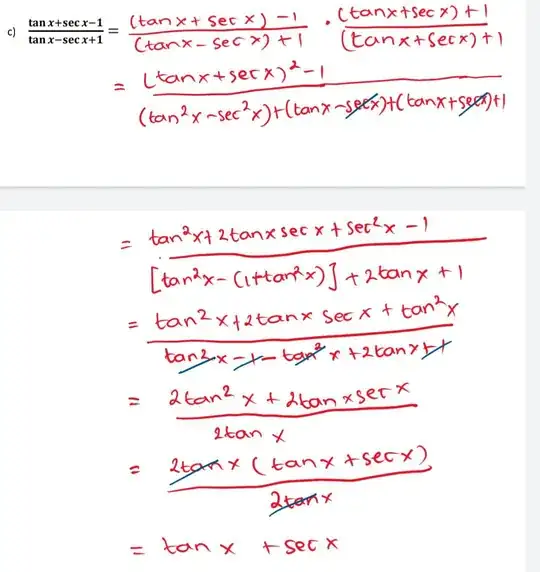 c) (tan x+sec x−1)/(tan x−sec x+1) = ((tan x + sec x) − 1)/((tan x − sec x) + 1) · ((tanx+sec x) + 1)/((tanx+secx) + 1)
= ((tanx+secx)² − 1)/((tan²x − sec²x)+(tanx − secx)+(tanx+secx)+1)
= (tan²x + 2tanx sec x + sec²x − 1)/([tan²x − (1+tan²x)] + 2tanx + 1)
= (tan²x + 2tanx sec x + tan²x)/(tan²x − 1 − tan²x + 2tanx + 1)
= (2tan²x + 2tanxsecx)/(2tan x)
= (2tanx (tanx + secx))/(2tanx)
= tan x + sec x